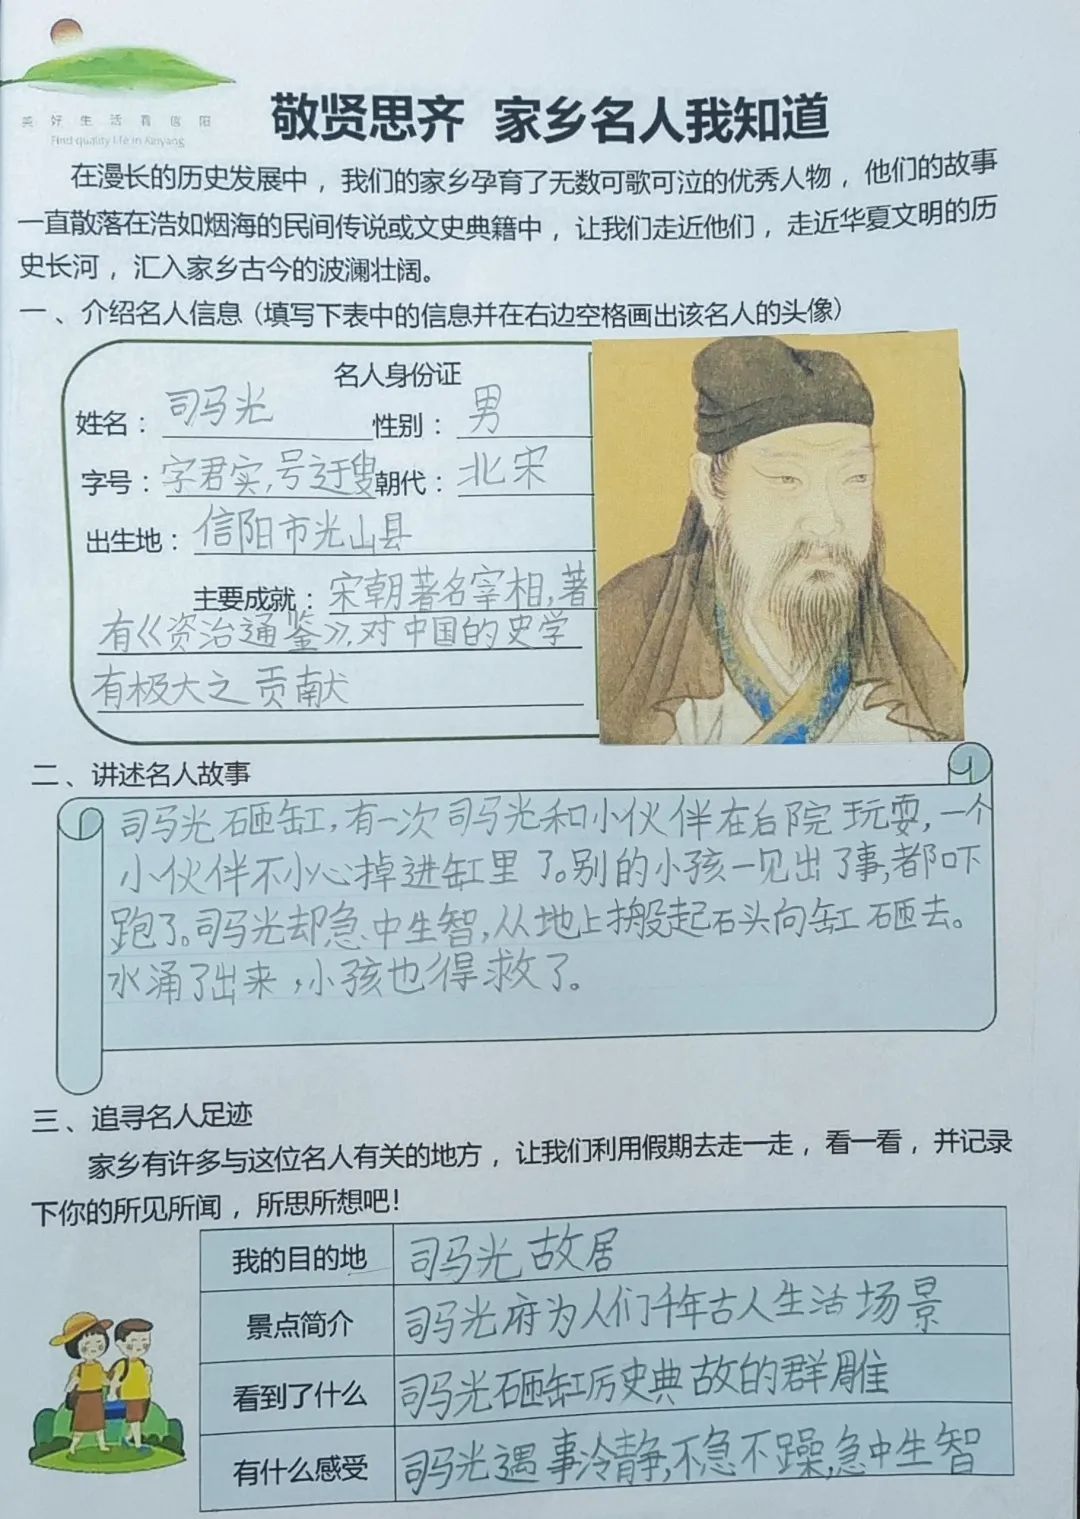 美好生活看信阳
Find quality life in Xinyang
敬贤思齐 家乡名人我知道
在漫长的历史发展中，我们的家乡孕育了无数可歌可泣的优秀人物，他们的故事
一直散落在浩如烟海的民间传说或文史典籍中，让我们走近他们，走近华夏文明的历
史长河，汇入家乡古今的波澜壮阔。
一、介绍名人信息（填写下表中的信息并在右边空格画出该名人的头像）
名人身份证
姓名：司马光 性别：男
字号：字君实,号迂叟 朝代：北宋
出生地：信阳市光山县
主要成就：宋朝著名宰相,著
有《资治通鉴》,对中国的史学
有极大之贡献
二、讲述名人故事
司马光砸缸,有一次司马光和小伙伴在后院玩耍,一个
小伙伴不小心掉进缸里了。别的小孩一见出了事,都吓
跑了。司马光却急中生智,从地上搬起石头向缸砸去。
水涌了出来,小孩也得救了。
三、追寻名人足迹
家乡有许多与这位名人有关的地方，让我们利用假期去走一走，看一看，并记录
下你的所见所闻，所思所想吧！
我的目的地 司马光故居
景点简介 司马光府为人们千年古人生活场景
看到了什么 司马光砸缸历史典故的群雕
有什么感受 司马光遇事冷静,不急不躁,急中生智